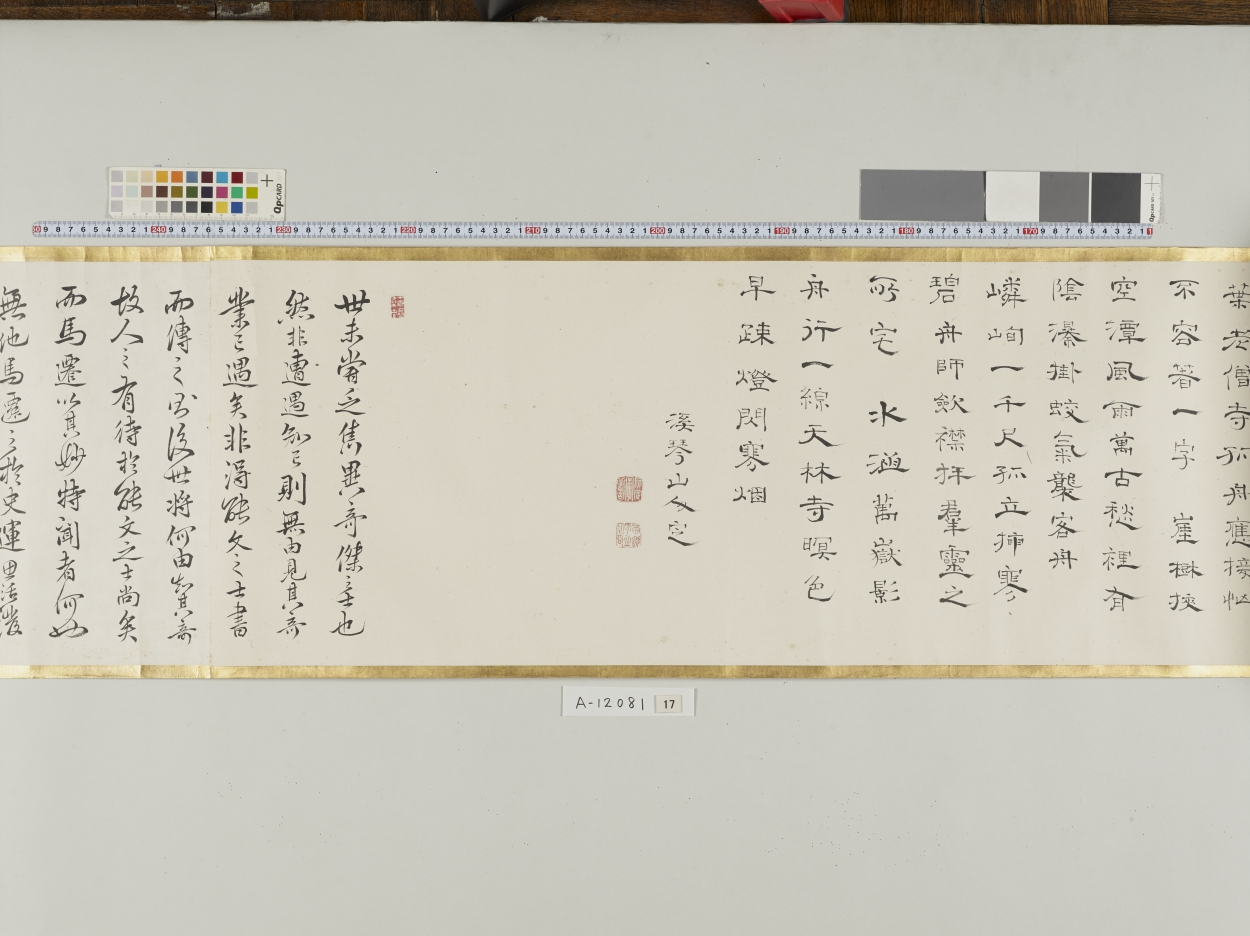 葉老僧寺孤舟應接忙
不容著一字　崖樾挾
空潭風雨萬古愁裡有
陰瀑掛蛟氣襲客舟
嶙峋一千尺孤立插寒
碧舟師斂襟拜羣靈之
所宅　水涵萬嶽影
舟行一線天林寺暝色
早疎燈閃寒烟
溪琴山
世未嘗乏雋異奇傑之士也
然非遭遇知己則無由見其奇
業已遇矣非得能文之士書
而傳之
後世將何由知其奇
故人之有待於能文之士尚矣
而馬遷以其妙特聞者何如
無他馬遷之於史運思活發
A-12081 17